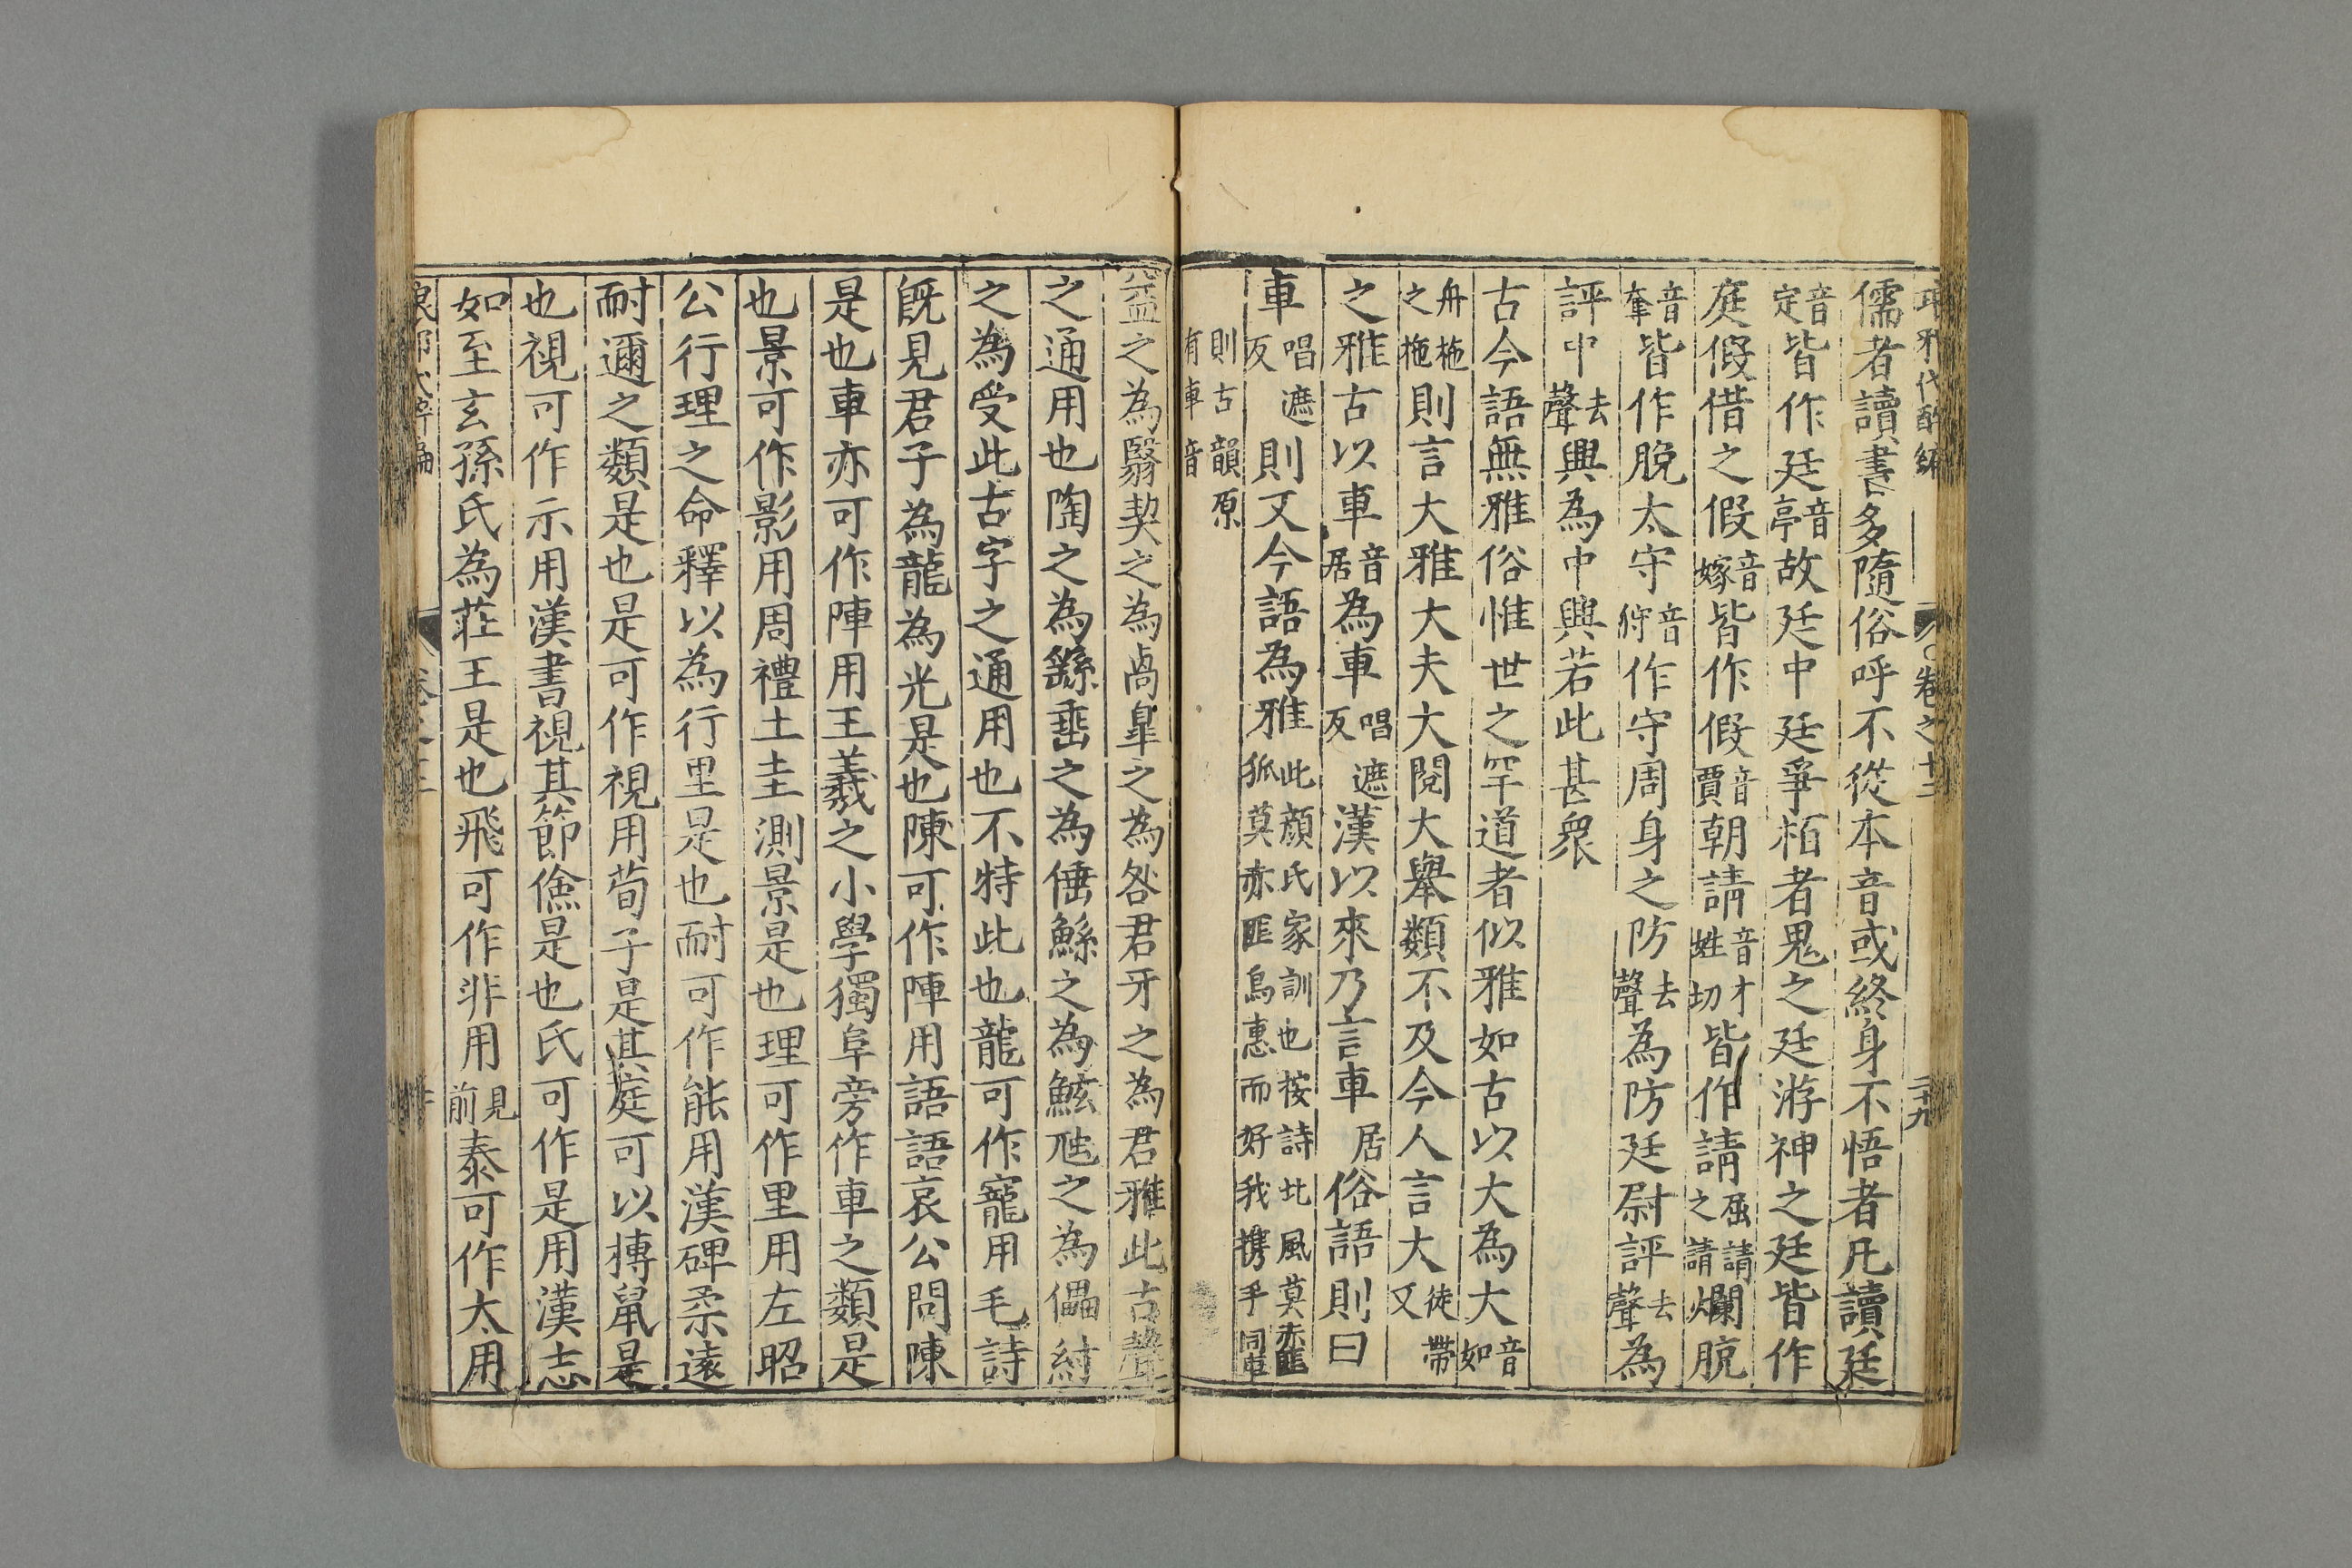 卷之十三
二十九
儒者讀書多隨俗呼不從本音或終身不悟者凡讀廷
音定皆作廷音亭故廷中廷爭栢者鬼之廷游神之廷皆作
庭假借之假音嫁皆作假音賈朝請音才姓切皆作請屈請之請爛脫
音奪皆作脫太守音狩作守周身之防去聲為防廷尉評去聲為
評中去聲興為中興若此甚衆
古今語無雅俗惟世之罕道者似雅如古以大為大音如
舟柂之柂則言大雅大夫大閱大舉類不及今人言大徒帶又
之雅古以車音居為車唱遮反漢以來乃言車居俗語則曰
車唱遮反則又今語為雅此顏氏家訓也按詩北風莫赤匪狐莫亦匪烏惠而好我携手同車
則古韻原有車音
益之為翳契之為卨臯之為咎君牙之為君雅此古聲
之通用也陶之為繇垂之為倕鯀之為鮌虺之為儡紂
之為受此古字之通用也不特此也龍可作寵用毛詩
旣見君子為龍為光是也陳可作陣用語語哀公問陳
是也車亦可作陣用王羲之小學獨阜旁作車之類是
也景可作影用周禮土圭測景是也理可作里用左昭
公行理之命釋以為行里是也耐可作能用漢碑柔遠
耐邇之類是也是可作視用荀子是其庭可以搏鼠是
也視可作示用漢書視其節儉是也氏可作是用漢志
如至玄孫氏為莊王是也飛可作非用見前泰可作太用